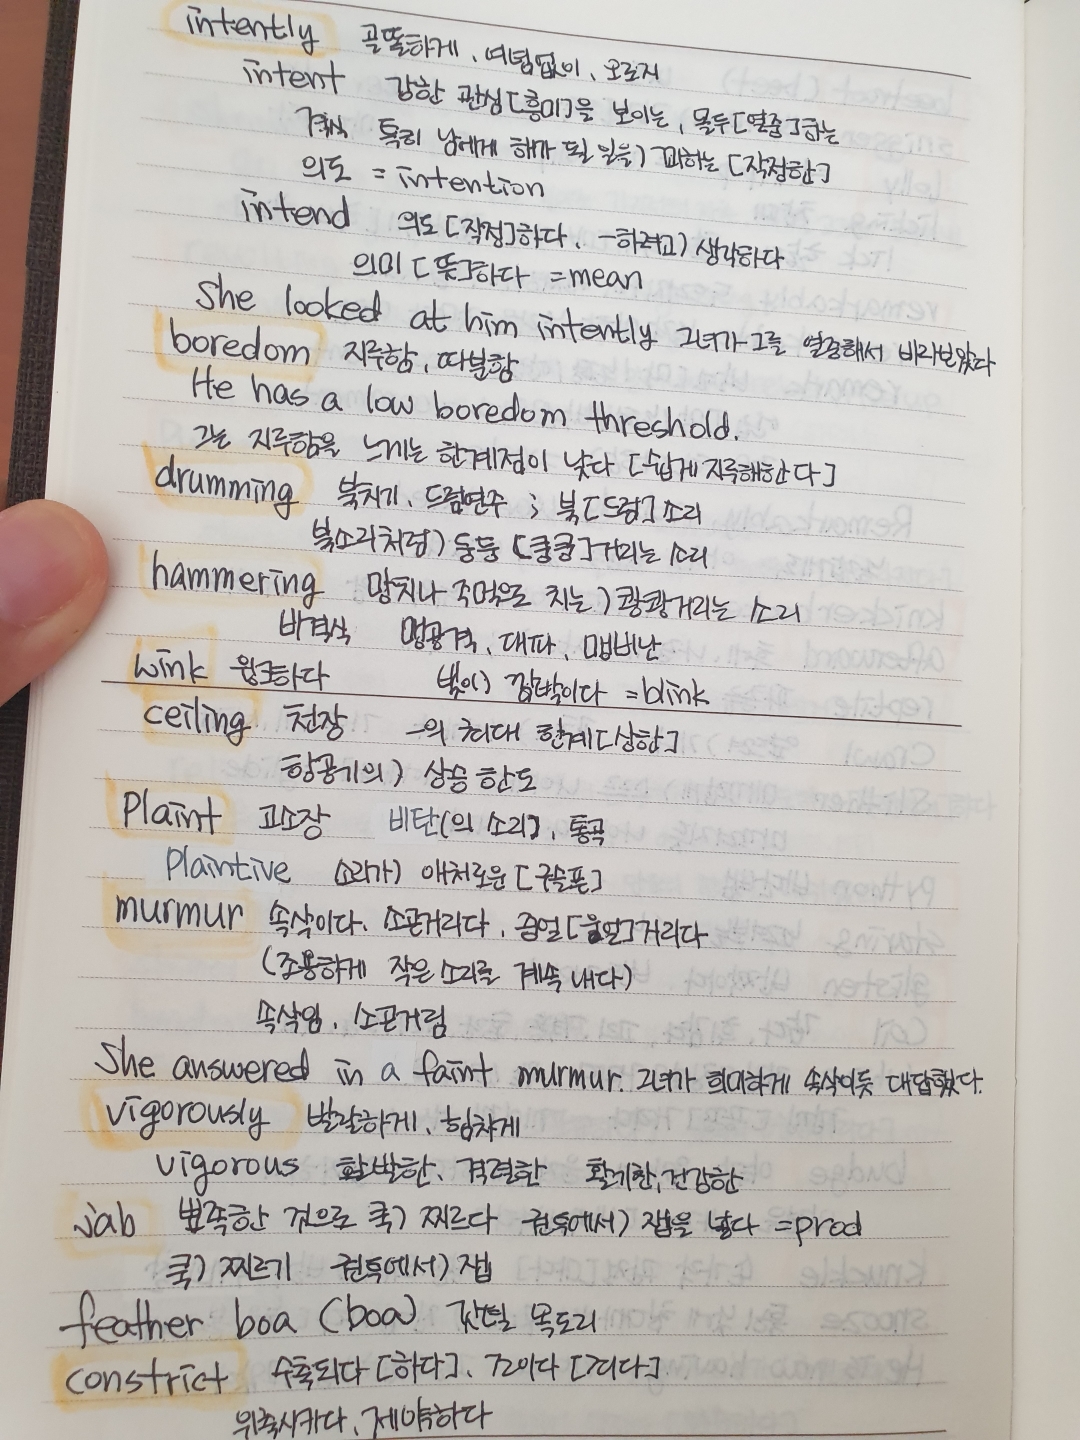 intently 골똘하게, 여념없이, 오로지
intent 강한 관심[흥미]을 보이는, 몰두[열중]하는
격식 특히 남에게 해가 될 일을) 꾀하는 [작정한]
의도 = intention
intend 의도[작정]하다, ~하려고) 생각하다
의미[뜻]하다 = mean
She looked at him intently 그녀가 그를 열중해서 바라보았다
boredom 지루함, 따분함
He has a low boredom threshold.
그는 지루함을 느끼는 한계점이 낮다 [쉽게 지루해한다]
drumming 북치기, 드럼연주 ; 북[드럼]소리
북소리처럼) 둥둥 [쿵쿵]거리는 소리
hammering 망치나 주먹으로 치는) 쾅쾅거리는 소리
비격식 맹공격, 대파, 맹비난
wink 윙크하다 빛이) 깜박이다 = blink
ceiling 천장 ~의 최대 한계[상한]
항공기의) 상승 한도
Plaint 고소장 비탄(의 소리), 통곡
Plaintive 소리가) 애처로운 [구슬픈]
murmur 속삭이다, 소곤거리다, 중얼[웅얼]거리다
(조용하게 작은 소리를 계속 내다)
속삭임, 소곤거림
She answered in a faint murmur. 그녀가 희미하게 속삭이듯 대답했다.
vigorously 발랄하게, 힘차게
vigorous 활발한, 격렬한 활기찬, 건강한
jab 뾰족한 것으로 쿡) 찌르다 권투에서) 잽을 넣다 = prod
쿡) 찌르기 권투에서) 잽
feather boa (boa) 깃털 목도리
constrict 수축되다[하다], 조이다[지다]
위축시키다, 제약하다